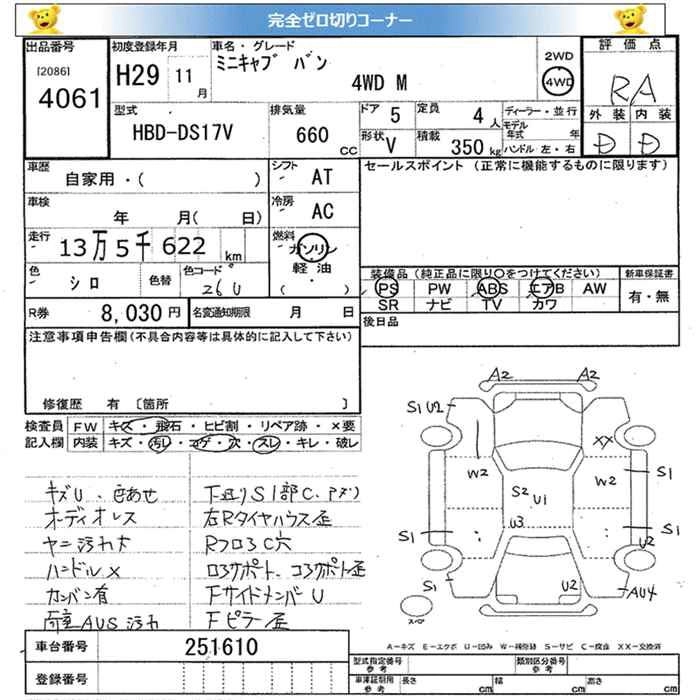 完全ゼロ切りコーナー
出品番号 初度登録年月 車名・グレード 評価点
[2086] H29 11月 ミニキャブ バン 2WD
4061 4WD M 4WD RA
型式 排気量 ドア 5 定員 4人 ディーラー・並行 外装 内装
HBD-DS17V 660 CC 形状 V 積載 350kg モデル年式 年 D D
ハンドル 左・右
車歴 自家用・( ) シフト AT セールスポイント(正常に機能するものに限ります)
車検 年 月( 日) 冷房 AC
走行 13万5千622km 燃料 ガソリン
軽油
( )
色 シロ 色替 色コード 26U 装備品(純正品に限り○をつけてください) 新車保証書
PS PW ABS エアB AW 有・無
SR ナビ TV カワ
R券 8,030円 名変通知期限 月 日 後日品
注意事項申告欄(不具合内容等は具体的に記入して下さい)
修復歴 有 [箇所 ]
検査員 FW キズ・飛石・ヒビ割・リペア跡・×要
記入欄 内装 キズ・汚レ・コゲ・穴・スレ・キレ・破レ
キズU、色あせ 下廻りS1部C、アオリ
オーディオレス 右Rタイヤハウス歪
ヤニ汚れ大 RフロアC穴
ハンドル× ロアサポート、コアサポート歪
カンバン有 FサイドメンバーU
荷室AUS汚れ Fピラー歪
A2 A2
S1 U2 XX
W2 W2 S1
S2 U1
U3
S1 S1
U2
S1 U2 AU4
スペア
A=キズ E=エクボ U=凹み W=補修跡 S=サビ C=腐食 XX=交換済
車台番号 251610
登録番号
型式指定番号 参考 類別区分番号 参考
車庫証明用 参考 長さ cm 幅 cm 高さ cm